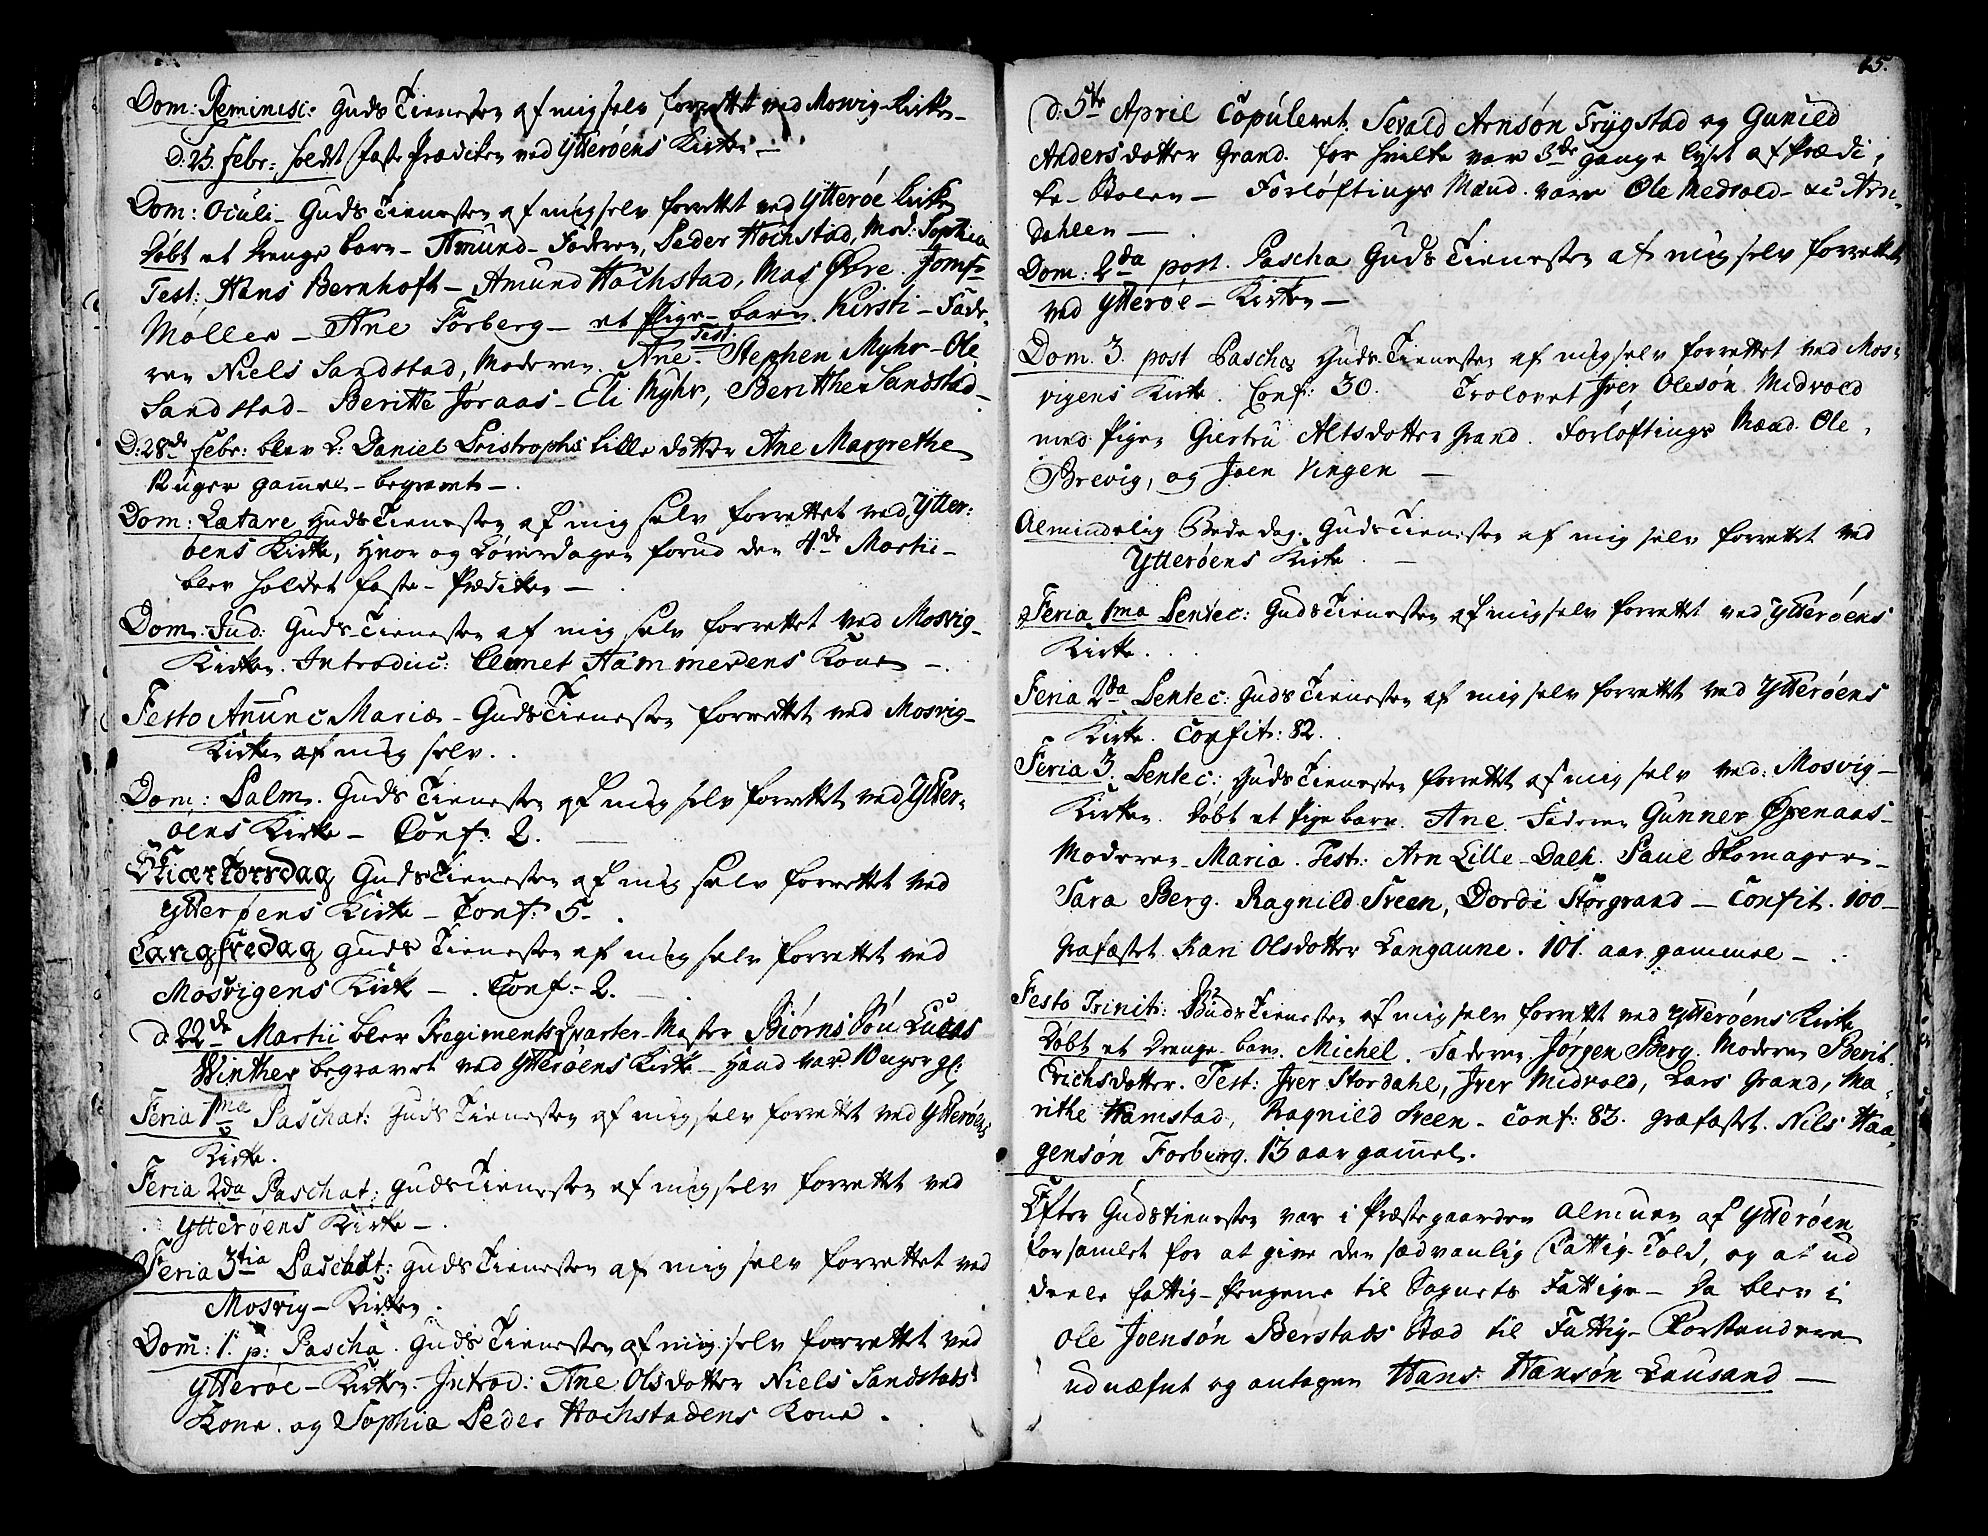 Dom: Reminisc: Guds Tienesten af mig selv forrettet ved Mosvig-Kirke-
d. 25. Febr: holdt Faste Prædiken ved Ytterøens Kirke-
Dom: Oculi- Guds Tienesten af mig selv forrettet ved Ytterøe Kirke
Døbt et Drenge barn- Amund- Faderen, Peder Hochstad, Mod: Sophia
Test: Hans Bernhoft- Amund Hochstad, Mas Øvre. Jomf:
Møller- Ane Forberg- et Pige-barn. Kirsti- Fade-
ren Niels Sandstad, Moderen Ane. Test. Stephen Myhr- Ole
Sandstad- Beritte Joraas- Eli Myhr, Beritthe Sandstad-
D: 28de Febr: blev S: Daniel Pristrophs lille dotter Ane Margrethe
12 uger gammel- begravet-.
Dom: Lætare Guds Tienesten af mig selv forrettet ved Ytter:
øens Kirke, hvor og Løverdagen forud den 4de Martii-
blev holdet Faste-Prædiken-
Dom: Jud: Guds Tienesten af mig selv forrettet ved Mosvig-
Kirke. Introduc: Clemet Hammerens Kone-.
Festo Anunc Mariæ- Guds Tienesten forrettet ved Mosvig-
Kirke af mig selv.
Dom: Palm. Guds Tienesten af mig selv forrettet ved Ytter-
øens Kirke- Conf: 2.
Skiærtorsdag Guds Tienesten af mig selv forrettet ved
Ytterøens Kirke- Conf: 5-.
Langfredag Guds Tienesten af mig selv forrettet ved
Mosvigens Kirke-. Conf:- 2.
d. 22de Martii blev Regiments Qvarter-Mester Biørns Søn Lucas
Winther begravet ved Ytterøens Kirke- Hand var 10 uger gl:
Feria 1ma Paschat: Guds Tienesten af mig selv forrettet ved Ytterøens
Kirke.
Feria 2da Paschat: Guds Tienesten af mig selv forrettet ved
Ytterøens Kirke-.
Feria 3tia Paschat: Guds Tienesten af mig selv forrettet ved
Mosvig-Kirken.
Dom: 1. p: Pascha. Guds Tienesten af mig selv forrettet ved
Ytterøe-Kirke. Introd: Ane Olsdotter Niels Sandstads
Kone. og Sophia Peder Hochstadens Kone.
15.
d. 5te April Copuleret. Sevald Arnsøn Trygstad og Gunild
Andersdotter Grand. for hvilke var 3de gange lyst af Prædi-
ke-Stolen- Forløftings Mænd vare Ole Medvold- & Arn-
Dahlen-.
Dom: 2da post. Pascha Guds Tienesten af mig selv forrettet
ved Ytterøe-Kirken-
Dom. 3. post Pascha Guds Tienesten af mig selv forrettet ved Mos-
vigens Kirke. Conf: 30. Trolovet Iver Olesøn Midvold
med Pigen Giertru Altsdotter Grand. Forløftings Mænd. Ole
Brevig, og Joen Vingen-
Almindelig Bededag. Guds Tienesten af mig selv forrettet ved
Ytterøens Kirke.
Feria 1ma Pentec: Guds Tienesten af mig selv forrettet ved Ytterøens
Kirke.
Feria 2da Pentec: Guds Tienesten af mig selv forrettet ved Ytterøens
Kirke. Confit: 82.
Feria 3. Pentec: Guds Tienesten forrettet af mig selv ved. Mosvig-
Kirken. Døbt et Pige barn. Ane. Faderen Gunner Øsenaas-
Moderen- Maria. Test: Arn Lille-Dalh. Paul Skomager-
Sara Berg. Ragnild Sveen, Dordi Storgrand- Confit. 100-
Grafæstet Kari Olsdotter Langaune. 101. aar gammel-.
Festo Trinit: Guds Tienesten af mig selv forrettet ved Ytterøens Kirke
Døbt et Drenge-barn. Michel. Faderen Jørgen Berg. Moderen Berit
Erichsdotter. Test: Iver Stordahl, Iver Midvold, Lars Grand, Ma-
rithe Hamstad, Ragnild Sveen. Conf: 83. Græfæstet. Nils Haa-
gensøn Forberg. 13 aar gammel.
Efter Gudstienesten var i Præstegaarden Almuen af Ytterøen
forsamlet for at give den sædvanlig Fattig-Told, og at ud
deele Fattig-Pengene til Sognets Fattige- Da blev i
Ole Joensøn Berstads Stæd til Fattig-Forstandere
udnæfnt og antagen Hans Hansøn Lausand-